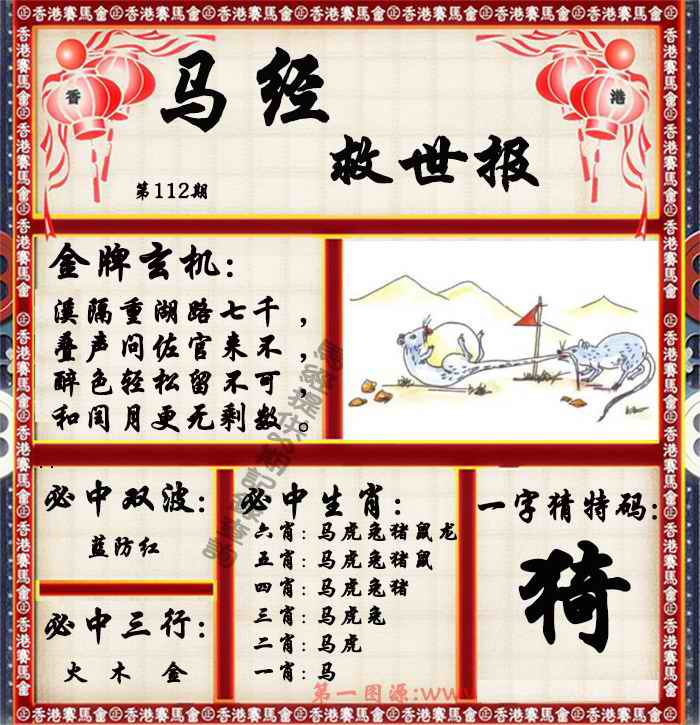 香港賽馬會
香 港
马经
救世报
第112期
金牌玄机:
溪隔重湖路七千，
叠声问佐官来不，
醉色轻松留不可，
和闰月更无剩数。
必中双波:
蓝防红
必中三行:
火 木 金
必中生肖:
六肖: 马虎兔猪鼠龙
五肖: 马虎兔猪鼠
四肖: 马虎兔猪
三肖: 马虎兔
二肖: 马虎
一肖: 马
一字猜特码:
猗
第一图源:www